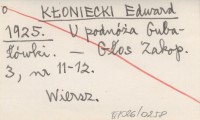 o KŁONIECKI Edward
1925. U podnóża Guba-
łówki. — Głos Zakop.
3, nr 11-12.
Wiersz.